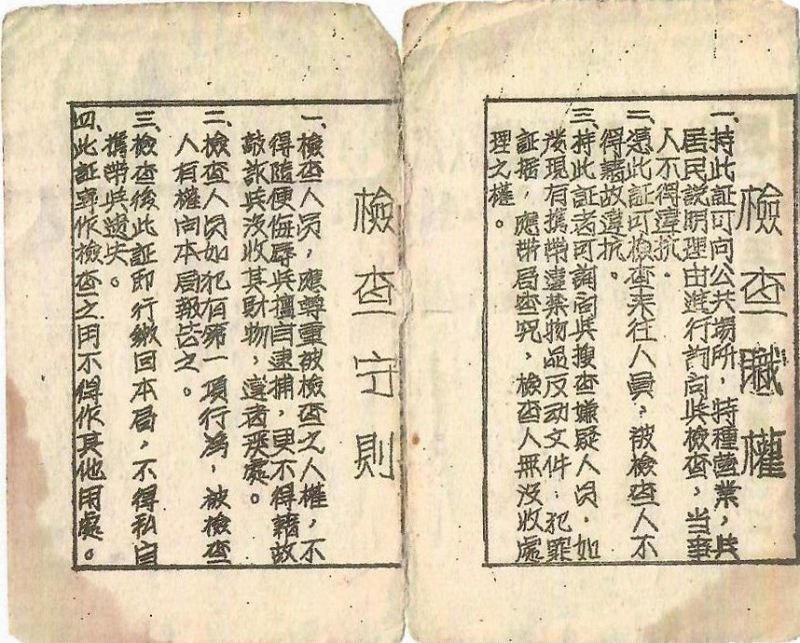 檢查職權
一、持此証可向公共場所，特種营業，与
居民說明理由進行詢问与檢查，当事
人不得違抗．
二、憑此証可檢查来往人員，被檢查人不
得藉故違抗。
三、持此証者可詢问与搜查嫌疑人员，如
发现有攜带違禁物品反动文件·犯罪
証据，應带局查究，檢查人無沒收處
理之權。
檢查守則
一、檢查人员，應尊重被檢查之人權，不
得隨便侮辱与擅自逮捕，更不得藉故
敲詐与沒收其財物，違者
二、檢查人员如犯有第一項行為，被檢查
人有權向本局報告之。
三、檢查後此証即行繳回本局，不得私自
攜带与遺失。
四、此証專作檢查之用不得作其他用處。